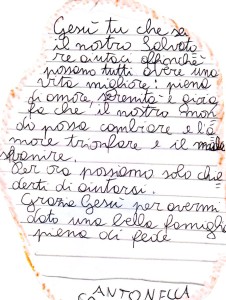 Gesù tu che sei
il nostro Salvato
re aiutaci affinchè
possano tutti avere una
vita migliore: piena
di amore, serenità e gioia
fa che il nostro mon
do possa cambiare e l'a
more trionfare e il male
sparire.
Per ora possiamo solo chie
derti di aiutarci.
Grazie Gesù per avermi
dato una bella famiglia
piena di fede
ANTONELLA